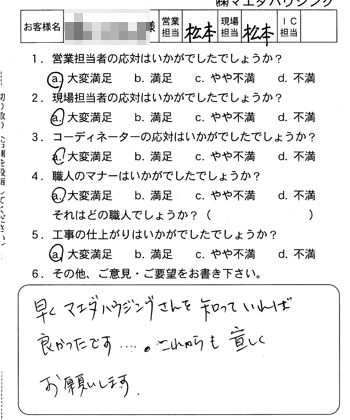 ㈱マエダハウジング
お客様名 様 営業担当 松本 現場担当 松本 IC担当
1. 営業担当者の応対はいかがでしたでしょうか？
a. 大変満足 b. 満足 c. やや不満 d. 不満
2. 現場担当者の応対はいかがでしたでしょうか？
a. 大変満足 b. 満足 c. やや不満 d. 不満
3. コーディネーターの応対はいかがでしたでしょうか？
a. 大変満足 b. 満足 c. やや不満 d. 不満
4. 職人のマナーはいかがでしたでしょうか？
a. 大変満足 b. 満足 c. やや不満 d. 不満
それはどの職人でしょうか？（ ）
5. 工事の仕上がりはいかがでしたでしょうか？
a. 大変満足 b. 満足 c. やや不満 d. 不満
6. その他、ご意見・ご要望をお書き下さい。
早くマエダハウジングさんを知っていれば
良かったです….。これからも宜しく
お願いします.